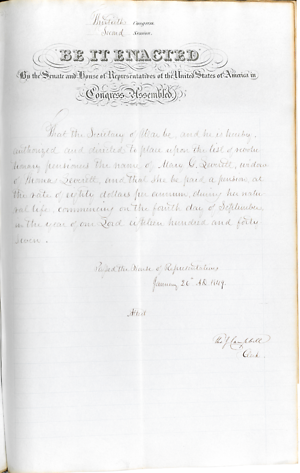 Thirtieth Congress
Second Session
BE IT ENACTED
By the Senate and House of Representatives of the United States of America in
Congress Assembled,
That the Secretary of War be, and he is hereby,
authorized and directed to place upon the list of revolu-
tionary pensioners the name of Mary C. widow
of Thomas and that she be paid a pension, at
the rate of eighty dollars per annum, during her natu-
ral life, commencing on the fourth day of September
in the year of our Lord eighteen hundred and forty
seven.
Passed the House of Representatives
January 26 1849.
Attest
Tho J Campbell
Clerk.